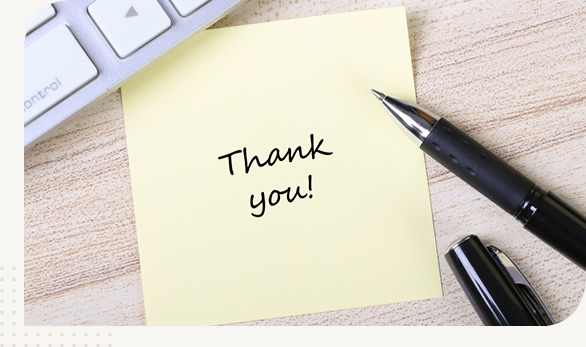 control
Thank
you!